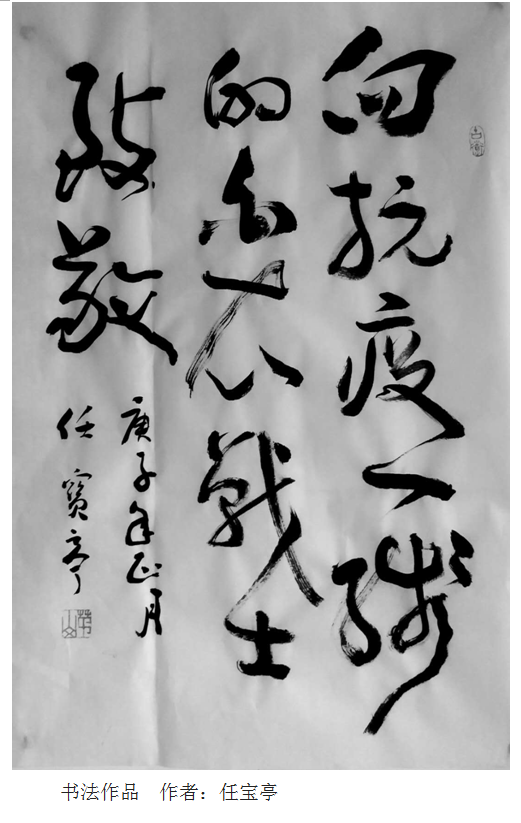 向抗疫一线
的白衣戰士
致敬
庚子年正月
任寶亭
书法作品 作者：任宝亭